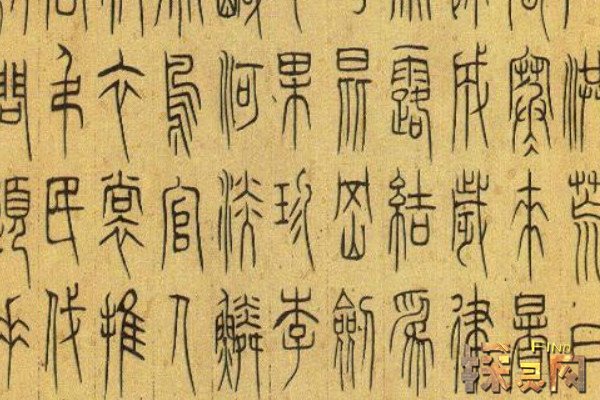 洪荒日
寒來暑
成歲律
露結為
昆岡劍
果珍李
河淡鱗
鳥官人
衣裳推
弔民伐
問道垂
FIND